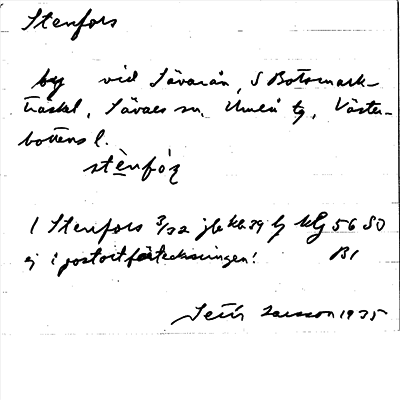 Stenfors
by vid Sävarån, S Botsmark-
träsket, Sävars sn. Umeå tg, Väster-
bottens l.
stènfóʂ
1 Stenfors 3/32 jb kb 39 by klg 56 SO
ej i postortförteckningen! B1
Larsson 1935